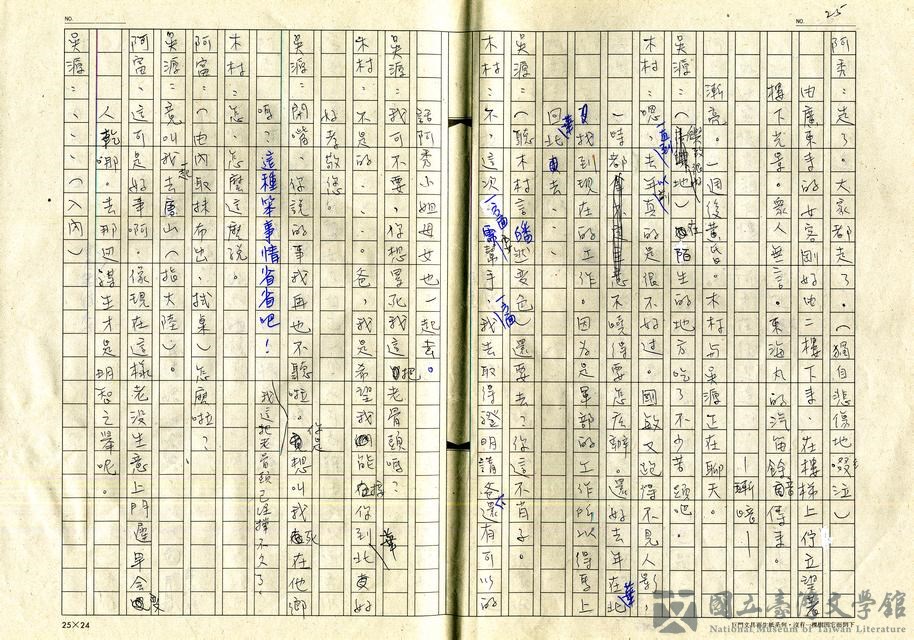 NO. 25
阿秀：走了。大家都走了。（獨自悲傷地啜泣）
由廣東來的女客剛好由二樓下來，在樓梯上佇立望著
樓下光景。眾人無言。東海丸的汽笛餘音傳來。
—漸暗—
漸亮。一週後黃昏。木村與吳源正在聊天。
吳源：（繼續地）在陌生的地方吃了不少苦頭吧。
木村：嗯，去年真的是很不好過。國敏又跑得不見人影，
一時都不曉得要怎麼辦。還好去年在北華
找到現在的工作。因為是軍部的工作所以得馬上
回北華去。
吳源：（聽木村言幡然變色）還要去？你這不肖子。
木村：不，這次一方面幫手，一方面我去取得證明請爸還有可以的
話阿秀小姐母女也一起去。
吳源：我可不要，你想累死我這把老骨頭嗎？
木村：不是的，爸，我是希望我能接你到北華好
好孝敬您。
吳源：閉嘴，你說的事我再也不聽啦。你是想叫我死在他鄉
嗎？這種笨事情省省吧！我這把老骨頭已經撐不久了。
木村：怎，怎麼這麼說。
阿富：（由內取抹布出，拭桌）怎麼啦？
吳源：竟叫我一起去唐山（指大陸）。
阿富：這可是好事啊。像現在這樣老沒生意上門遲早會變
人乾哪。去那邊謀生才是明智之舉呢。
吳源：……（入內）
25×24
國立臺灣文學館
National Museum of Taiwan Literature